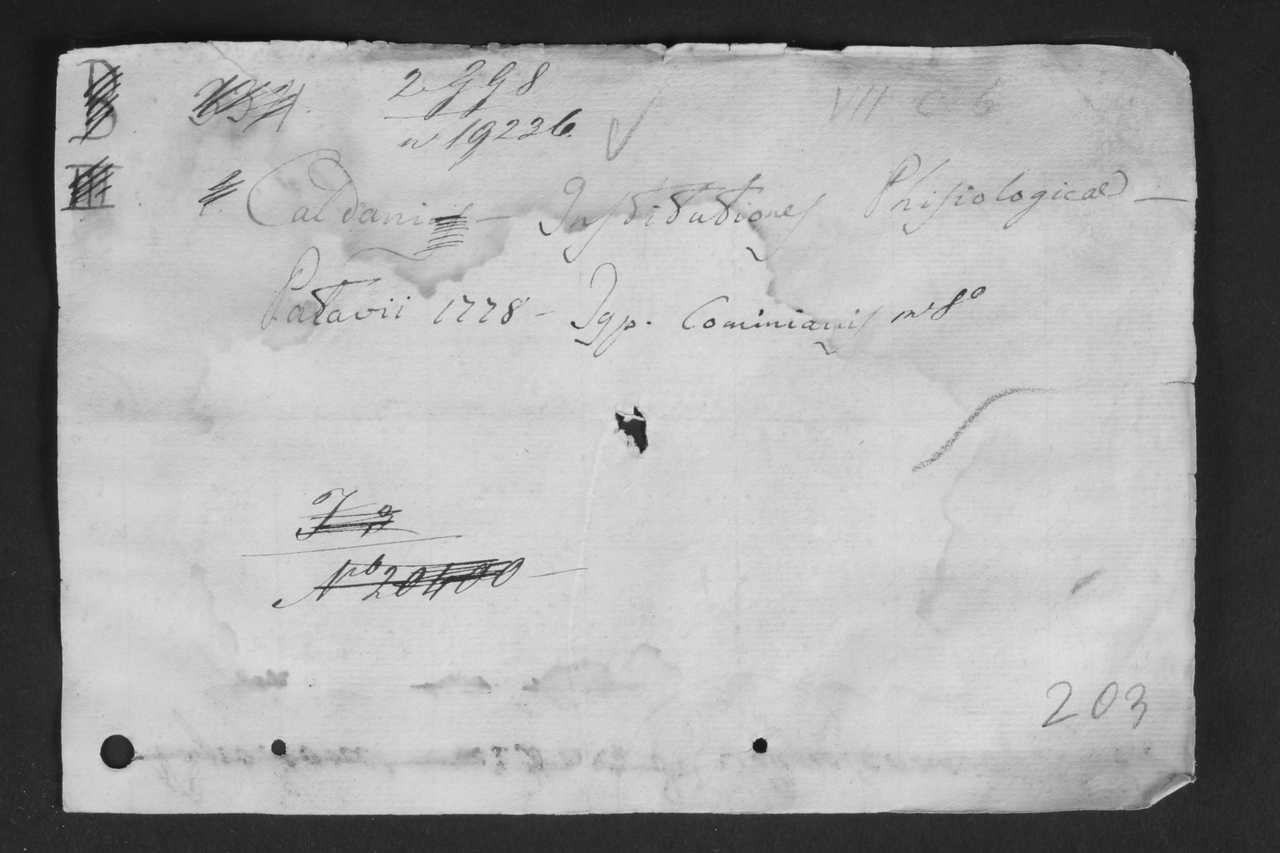 2998
n 19226.
VII C 6
Caldani — Institutiones Phisiologicae —
Patavii 1778 — Typ. Cominianis in 8º
Nro 20400 —
203